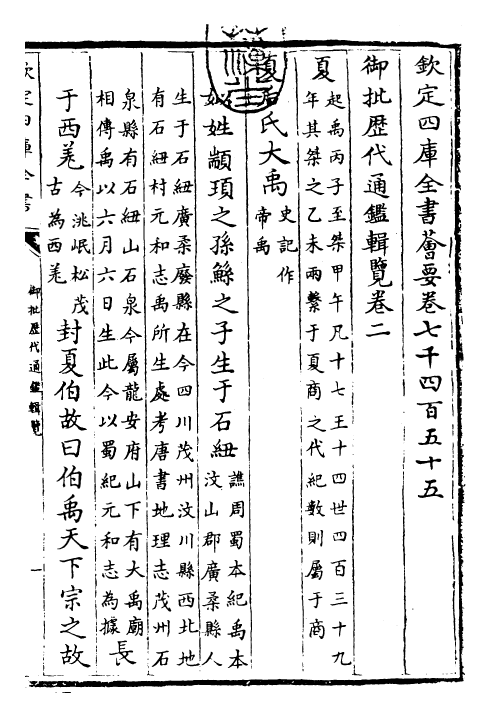 欽定四庫全書薈要卷七千四百五十五
御批歴代通鑑輯覽卷二
夏
起禹丙子至桀甲午凡十七王十四世四百三十九
年其桀之乙未兩繫于夏商之代紀數則屬于商
夏后氏大禹
史記作
帝禹
姒姓顓頊之孫鯀之子生于石紐
譙周蜀本紀禹本
汶山郡廣柔縣人
生于石紐廣柔廢縣在今四川茂州汶川縣西北地
有石紐村元和志禹所生處考唐書地理志茂州石
泉縣有石紐山石泉今屬龍安府山下有大禹廟
相傳禹以六月六日生此今以蜀紀元和志為據
長
于西羌
今洮岷松茂
古為西羌
封夏伯故曰伯禹天下宗之故
欽定四庫全書
御批歴代通鑑輯覽
一